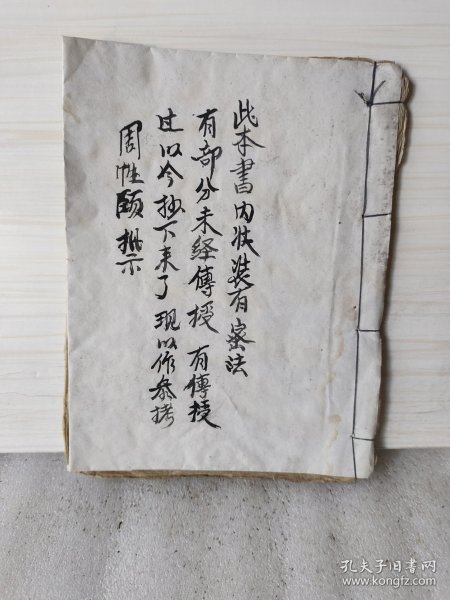 此本書内狀装有密法
有部分未经傳授 有傳授
过以今抄下来了 现以作参考
周性颐批示
孔夫子旧书网
www.kongfz.com